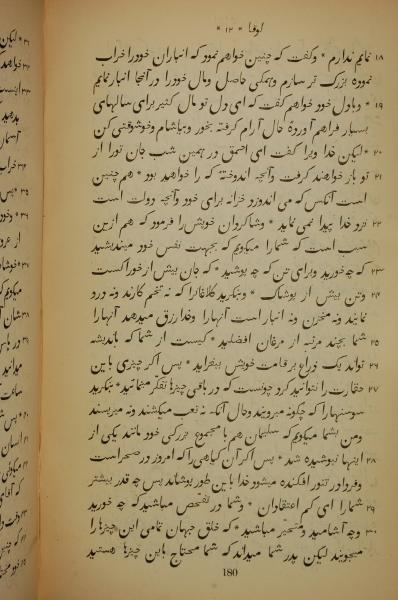 لوقا * ۱۲ *
۱۸ نمایم ندارم * وگفت که چنین خواهم نمود که انبارهای خودرا خراب
نموده بزرگ تر سازم وهمگی حاصل ومال خودرا در آنجا انبار نمایم
۱۹ * وبا دل خود خواهم گفت که ای دل تو مال کثیر برای سالهای
بسیار فراهم آوردۀ حال آرام گرفته بخور وبیاشام وخوشوقتی کن
۲۰ * لیکن خدا ویرا گفت ای احمق در همین شب جان تورا از
۲۱ تو باز خواهند گرفت وآنچه اندوختۀ که را خواهد بود * هم چنین
است آنکس که می اندوزد خزانه برای خود وآنچه دولت است
۲۲ نزد خدا پیدا نمی نماید * وشاگردان خویش را فرمود که هم ازین
سبب است که شمارا میگویم که بجهت نفس خود میندیشید
۲۳ که چه خورید وبرای تن که چه پوشید * که جان بیش از خوراکست
۲۴ وتن بیش از پوشاک * وبنگرید کلاغانرا که نه تخم کارند ونه درو
نمایند ونه مخزن ونه انبار است آنهارا وخدا رزق میدهد آنهارا
۲۵ شما بچند مرتبه از مرغان افضلید * کیست از شما که باندیشه
۲۶ تواند یک ذراع بر قامت خویش بیفزاید * پس اگر چیزی باین
۲۷ حقارت را نتوانید کرد چونست که در باقی چیزها تفکر مینمائید * بنگرید
سوسنهارا که چگونه میرویند وحال آنکه نه تعب میکشند ونه میریسند
ومن بشما میگویم که سلیمان هم با مجموع بزرگی خود مانند یکی از
۲۸ اینها نپوشیده شد * پس اگر آن گیاهی را که امروز در صحراست
وفردا در تنور افکنده میشود خدا باین طور بپوشاند پس چه قدر بیشتر
۲۹ شمارا ای کم اعتقادان * وشما در تفحص مباشید که چه خورید
۳۰ وچه آشامید ومتحیر مباشید * که خلق جهان تمامی این چیزها را
میجویند لیکن پدر شما میداند که شما محتاج باین چیزها هستید
180